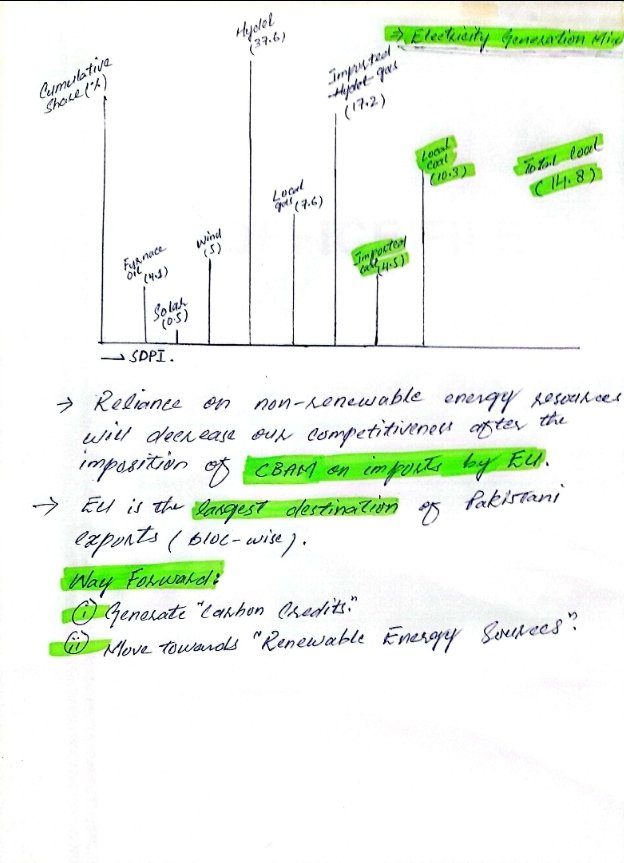 ⇒ Electricity Generation Mix
Cumulative
Share (%)
Furnace
oil (4.1)
Solar
(0.5)
Wind
(5)
Hydel
(37.6)
Local
gas (7.6)
Imported
Hydel gas
(17.2)
Imported
coal (4.5)
Local
coal
(10.3)
Total Coal
(14.8)
→ SDPI.
→ Reliance on non-renewable energy resources
will decrease our competitiveness after the
imposition of CBAM on imports by EU.
→ EU is the largest destination of Pakistani
exports (Bloc-wise).
Way Forward:
(i) Generate "Carbon Credits."
(ii) Move towards "Renewable Energy Sources".